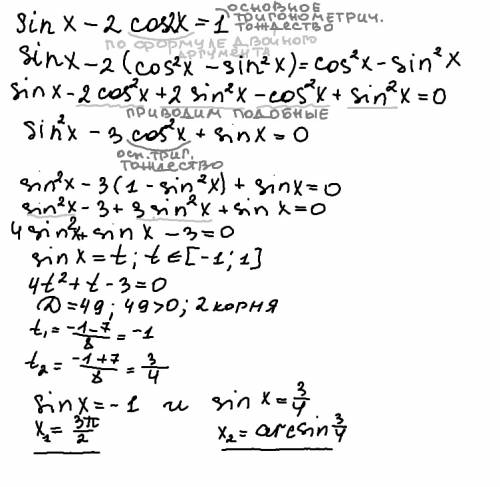 sin x - 2 cos2x = 1 основное тригонометрич. тождество
по формуле двойного аргумента
sin x - 2 (cos²x - sin²x) = cos²x - sin²x
sin x - 2 cos²x + 2 sin²x - cos²x + sin²x = 0
приводим подобные
sin²x - 3 cos²x + sin x = 0
осн. триг. тождество
sin²x - 3 (1 - sin²x) + sin x = 0
sin²x - 3 + 3 sin²x + sin x = 0
4 sin²x + sin x - 3 = 0
sin x = t ; t ∈ [-1; 1]
4t² + t - 3 = 0
D = 49 ; 49 > 0 ; 2 корня
t₁ = (-1-7)/8 = -1
t₂ = (-1+7)/8 = 3/4
sin x = -1 и sin x = 3/4
x₁ = 3π/2 x₂ = arcsin 3/4